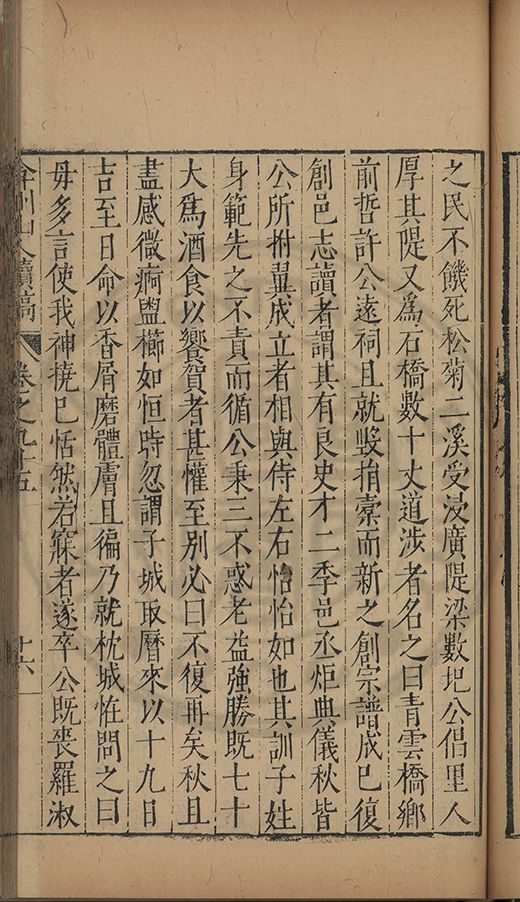 之民不饑死松菊二溪受浸廣隄梁數圯公倡里人
厚其隄又為石橋數十丈道涉者名之曰青雲橋鄉
前哲許公遠祠且就毀捐橐而新之創宗譜成已復
創邑志讀者謂其有良史才二季邑丞炬典儀秋皆
公所拊翼成立者相與侍左右怡怡如也其訓子姓
身範先之不責而循公秉三不惑老益強勝既七十
大為酒食以饗賀者甚懽至別必曰不復再矣秋且
盡感微痾盥櫛如恒時忽謂子城取曆來以十九日
吉至日命以香屑磨體膚且徧乃就枕城恠問之曰
毋多言使我神撓已恬然若寐者遂卒公既喪羅淑
弇州山人續稿 卷之九十五 十六